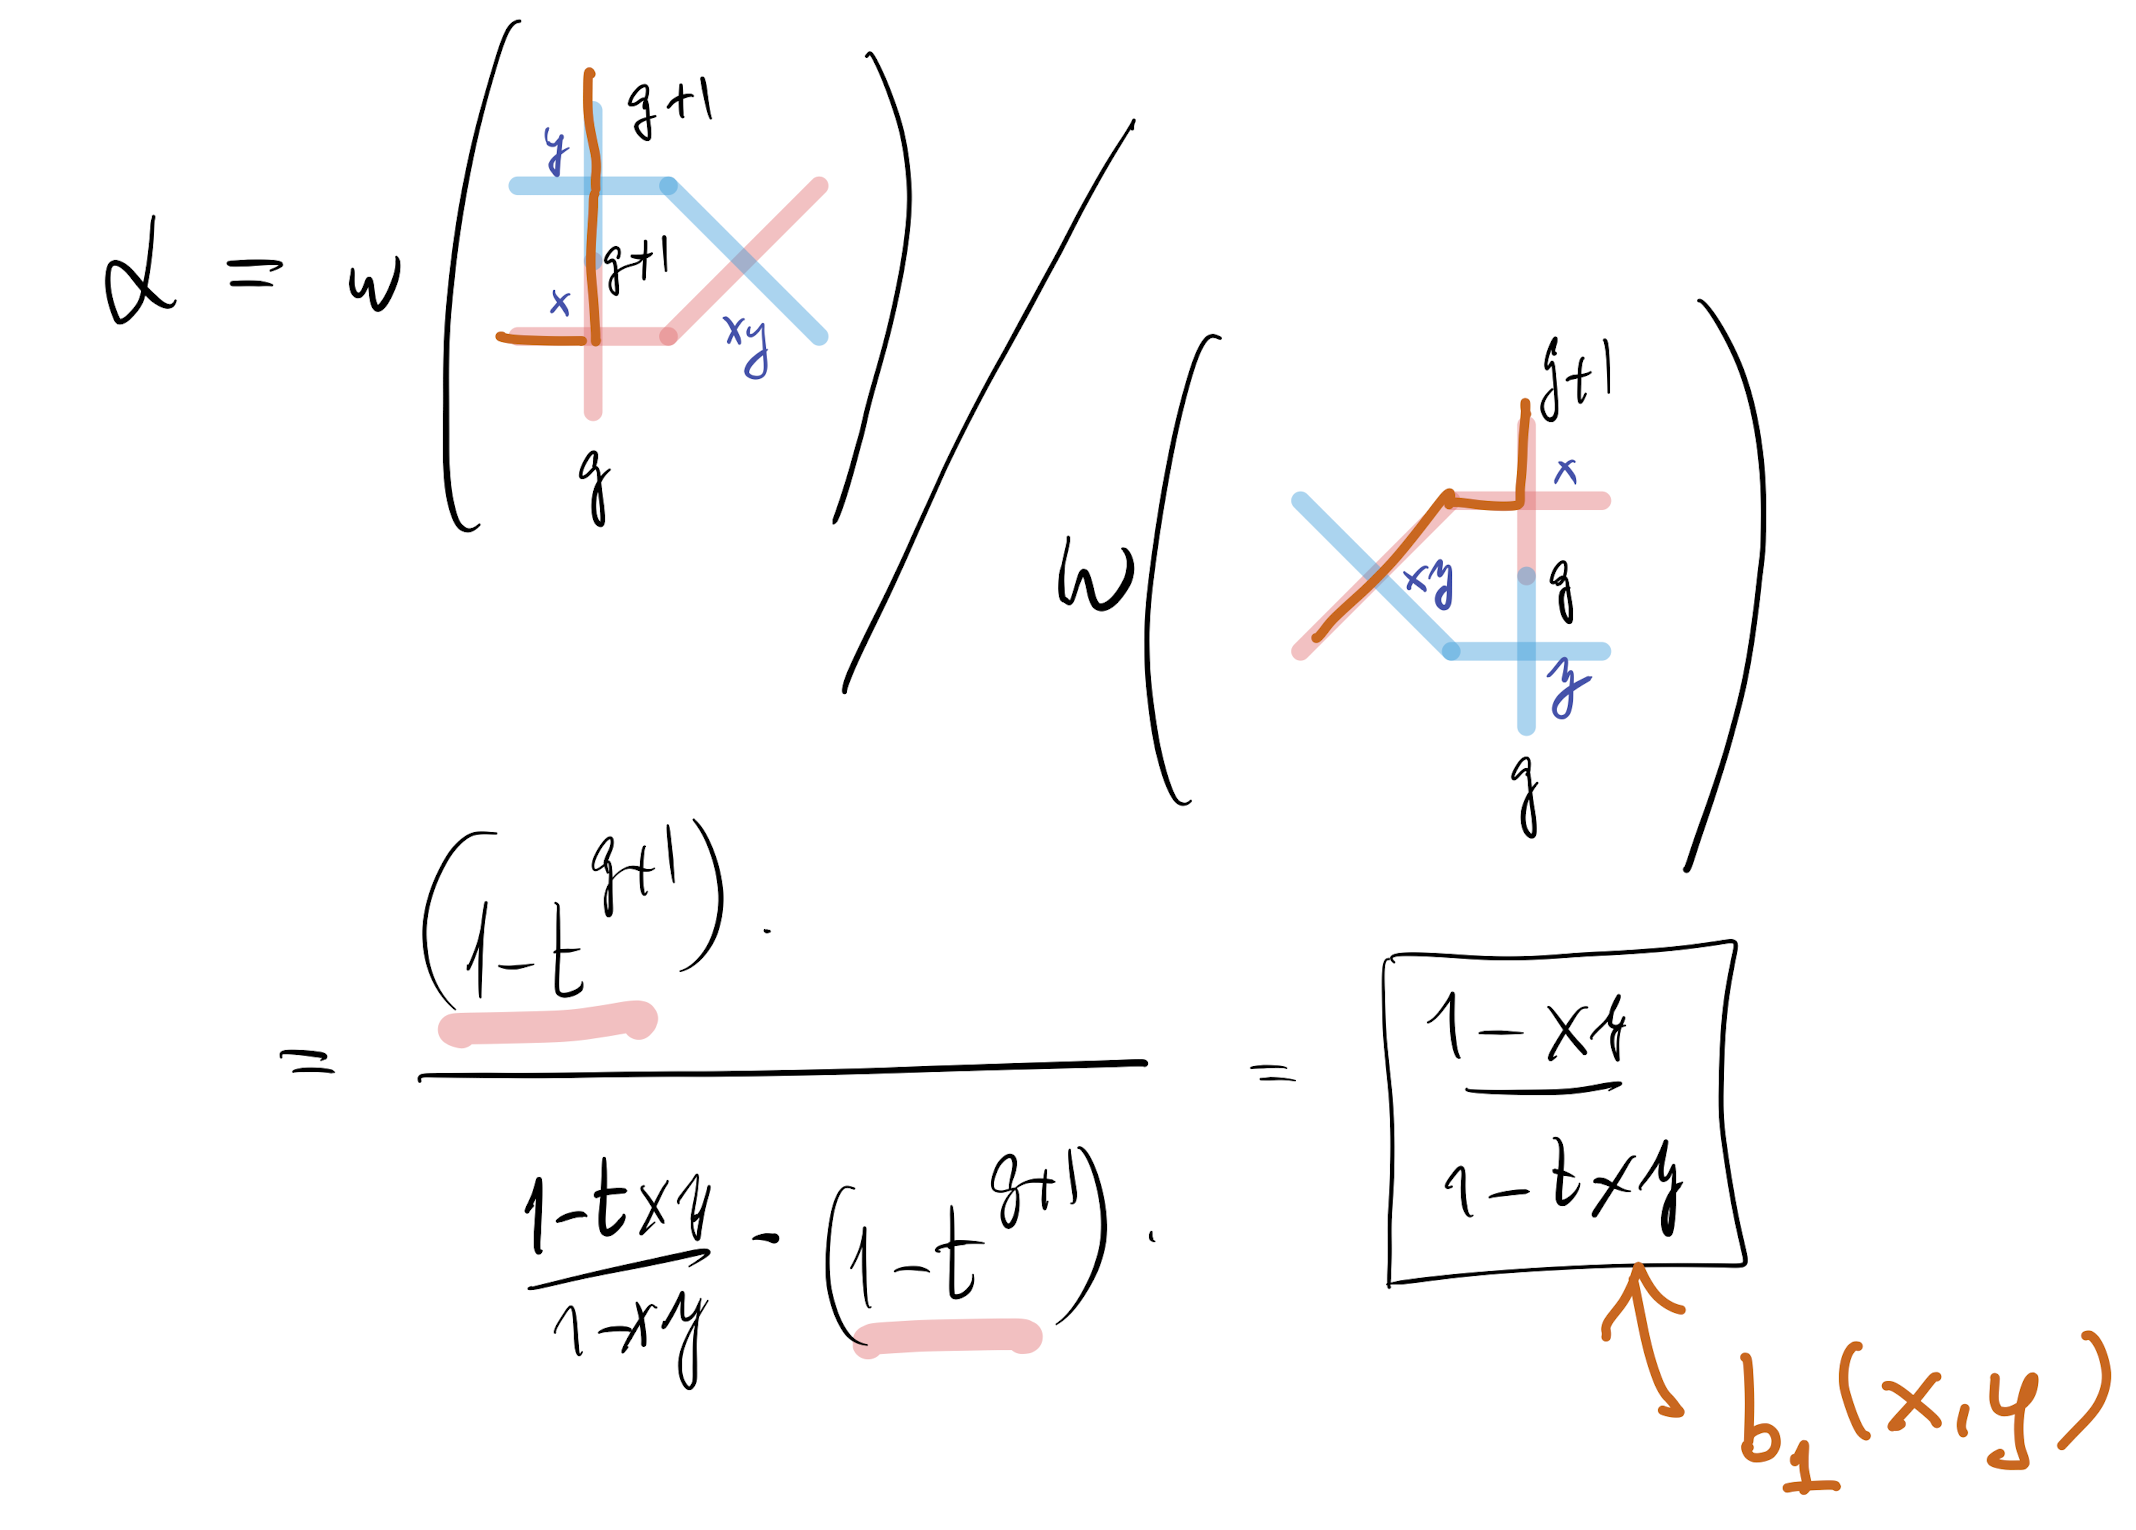 α = w ( g+1 y g+1 x xy g ) / w ( g+1 x xy g y g )
= (1-t^{g+1}) · / \frac{1-txy}{1-xy} · (1-t^{g+1}) · = \frac{1-xy}{1-txy}
b_1(x,y)